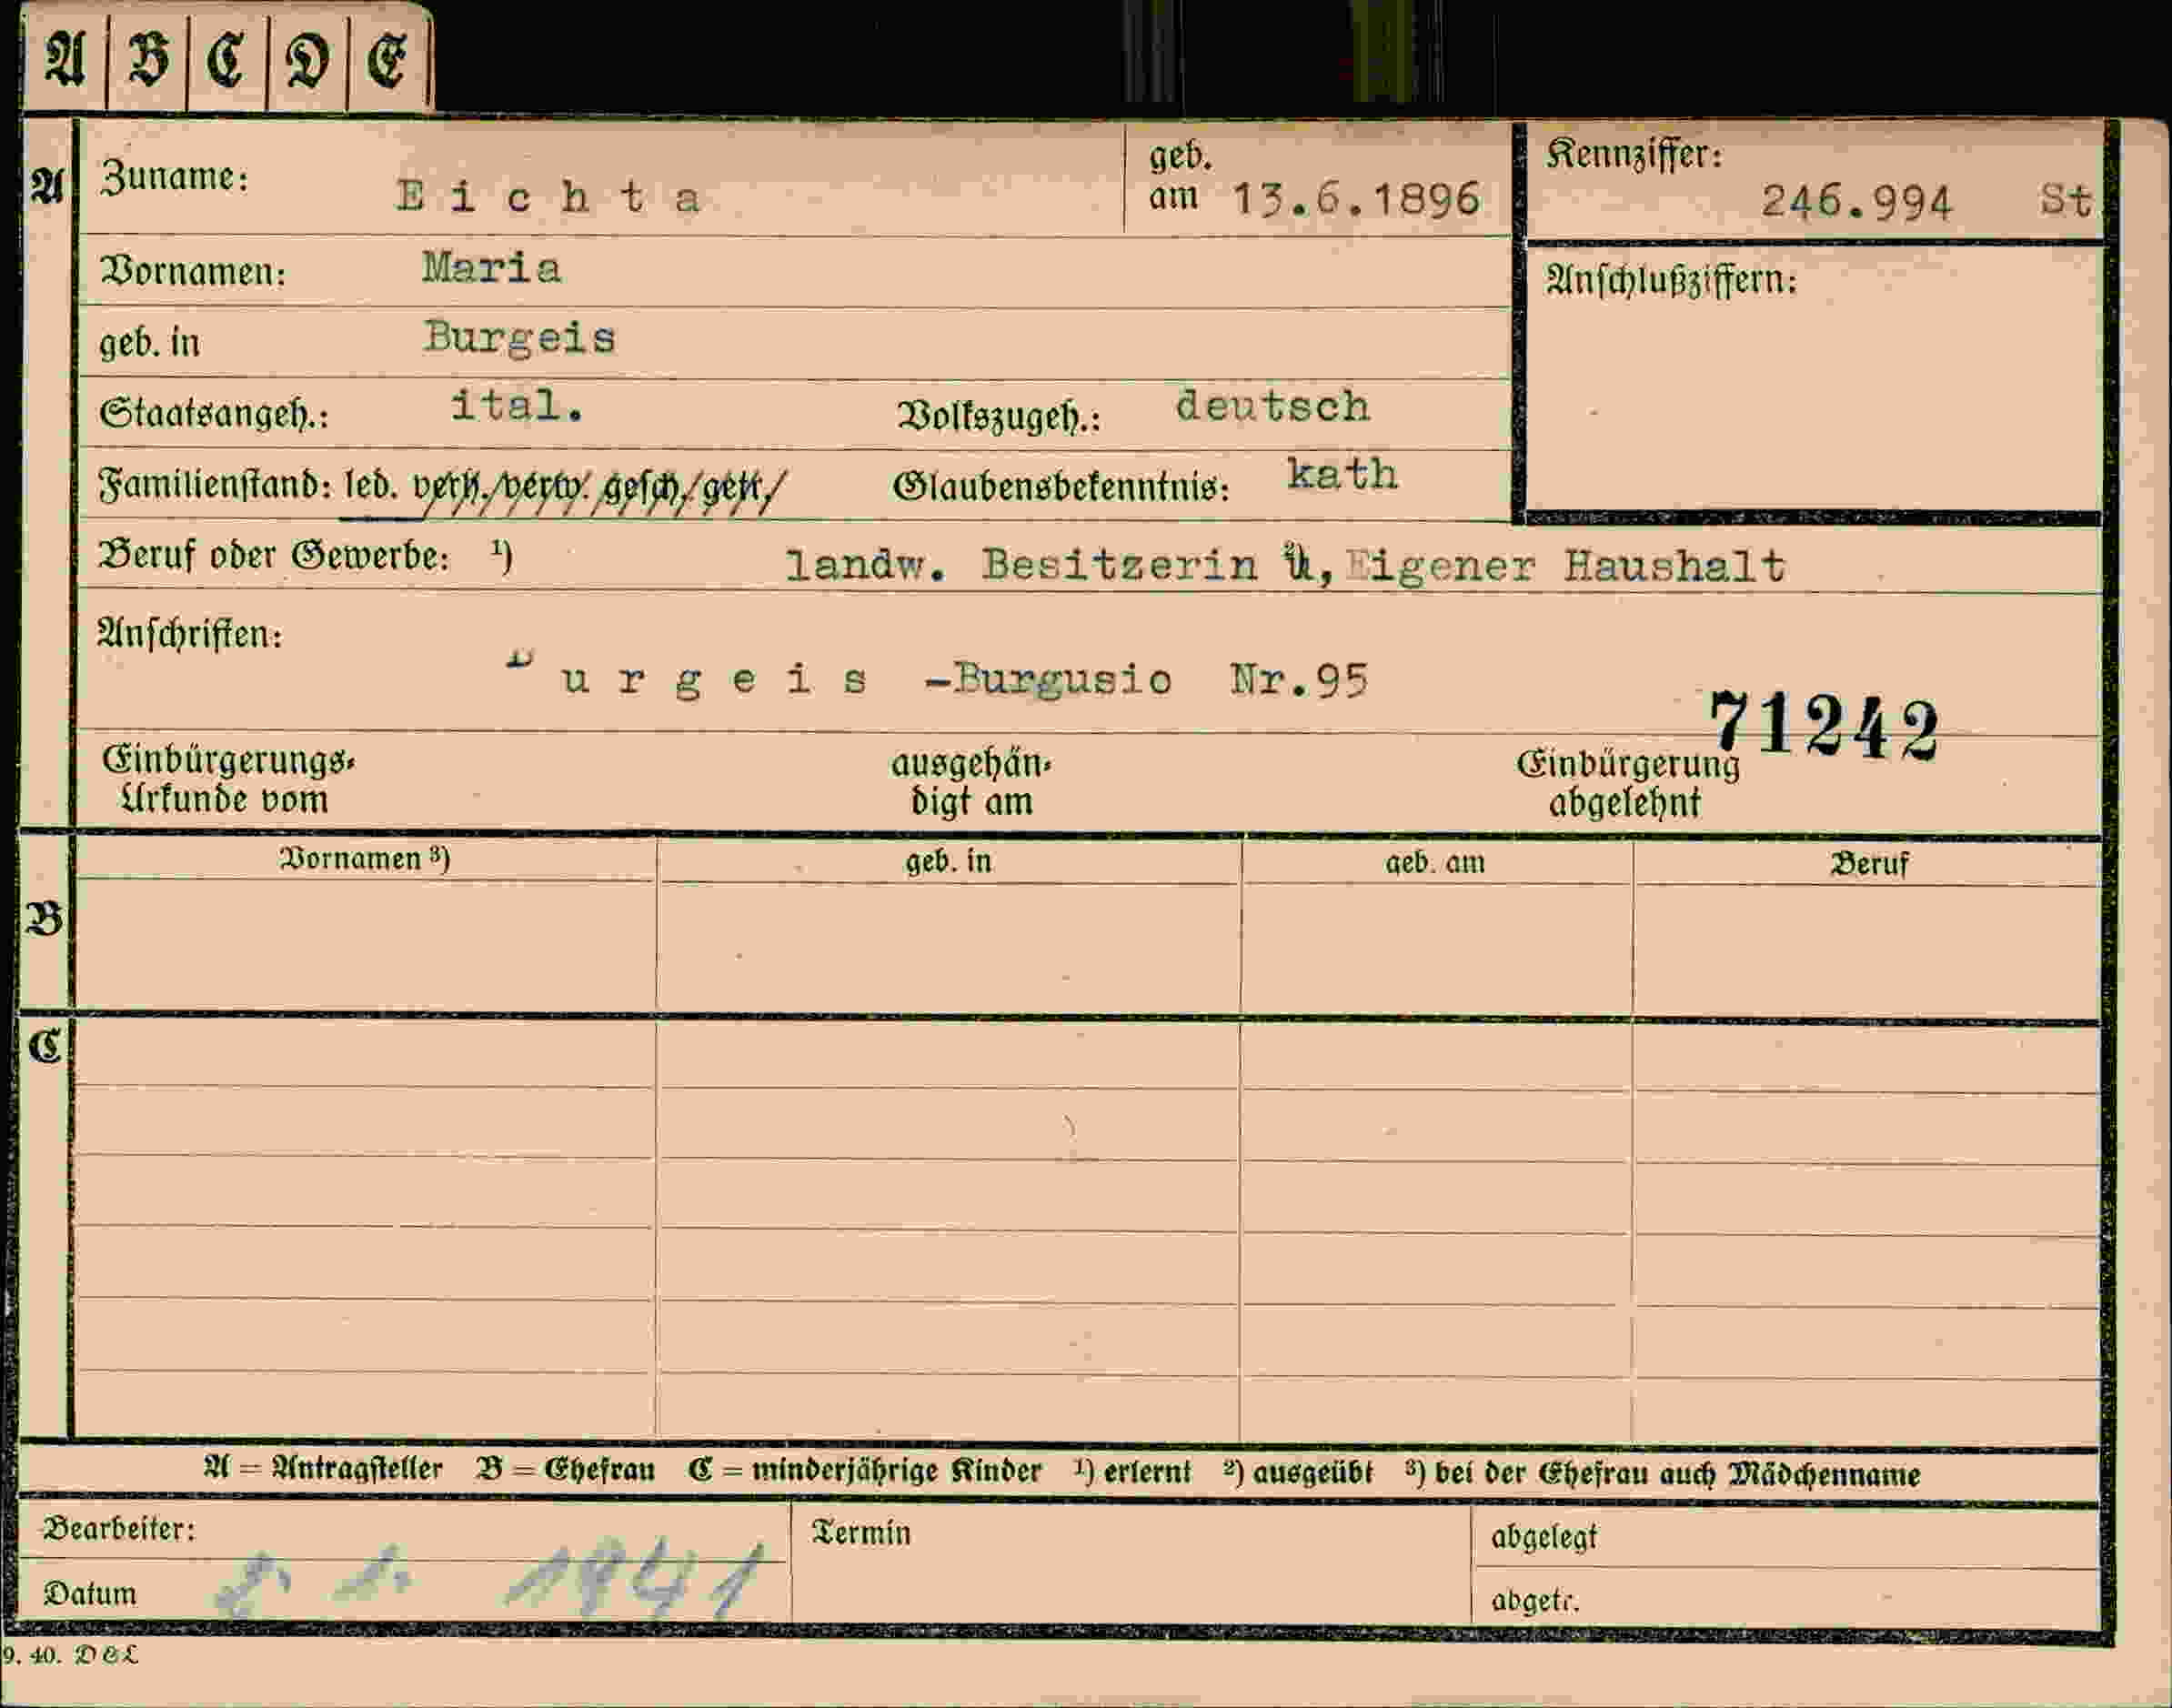 A B C D E
A Zuname: Eichta geb. am 13.6.1896 Kennziffer: 246.994 St
Vornamen: Maria Anschlußziffern:
geb. in Burgeis
Staatsangeh.: ital. Volkszugeh.: deutsch
Familienstand: led. verh. verw. gesch. getr. Glaubensbekenntnis: kath
Beruf oder Gewerbe: ¹) landw. Besitzerin ²) Eigener Haushalt
Anschriften:
Burgeis -Burgusio Nr.95
71242
Einbürgerungs- ausgehän- Einbürgerung
Urkunde vom digt am abgelehnt
Vornamen ³) geb. in geb. am Beruf
B
C
A = Antragsteller B = Ehefrau C = minderjährige Kinder ¹) erlernt ²) ausgeübt ³) bei der Ehefrau auch Mädchenname
Bearbeiter: Termin abgelegt
Datum 1941 abgetr.
9. 40. D & L